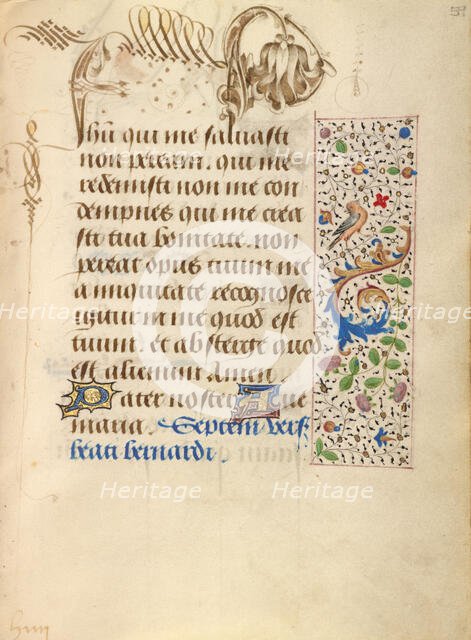 Ihu qui me saluasti
non peream. qui me
redemisti non me con
dempnes qui me crea
sti tua bonitate. non
pereat opus tuum me
a iniquitate recognosce
igitur in me quod est
tuum. et absterge quod
est alienum Amen
Pater noster Aue
maria. Septem vers
beati bernardi.
Heritage
Heritage
Heritage
Heritage
Heritage
Heritage
Heritage
Heritage
Heritage